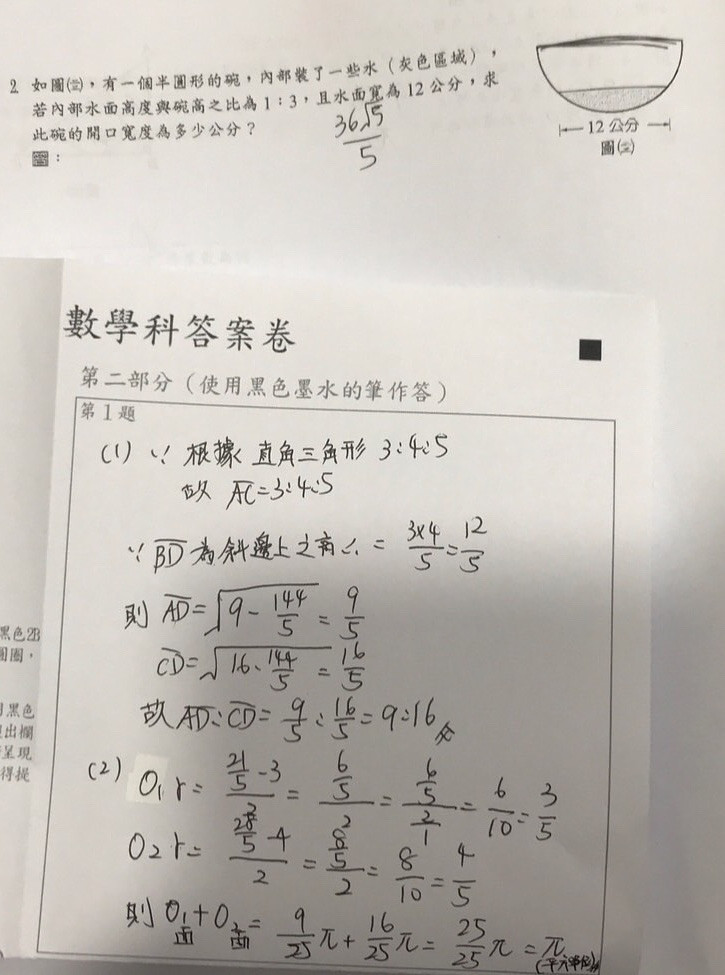 2 如圖(三)，有一個半圓形的碗，內部裝了一些水（灰色區域），
若內部水面高度與碗高之比為1：3，且水面寬為12公分，求
此碗的開口寬度為多少公分？
答：
36√5/5
12公分
圖(三)
數學科答案卷
第二部分（使用黑色墨水的筆作答）
第1題
(1) ∵ 根據直角三角形 3:4:5
故 AC=3:4:5
∵ BD為斜邊上之高 ∴ = 3×4/5 = 12/5
則 AD=√(9-144/5) = 9/5
CD=√(16-144/5) = 16/5
故 AD:CD= 9/5 : 16/5 = 9:16
(2) O₁r= (21/5-3)/2 = (6/5)/2 = (6/5)/(2/1) = 6/10 = 3/5
O₂r= (28/5-4)/2 = (8/5)/2 = 8/10 = 4/5
則 O₁面+O₂面= 9/25π+16/25π= 25/25π=π(平方單位)
黑色2B
圈圈，
用黑色
出欄
呈現
得提